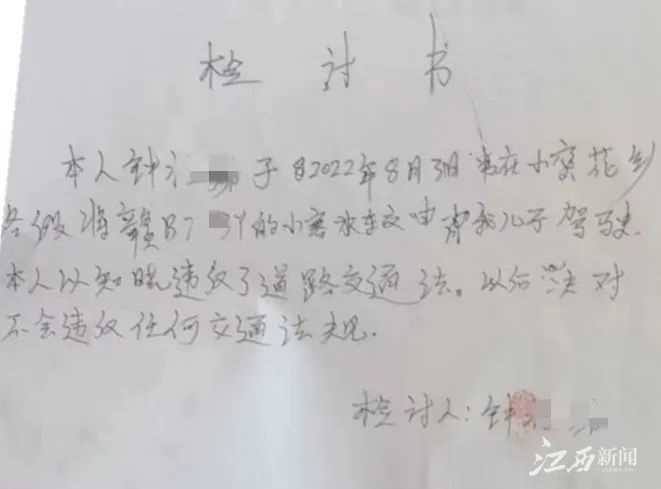 检 讨 书
本人钟 于2022年8月 在小 花乡
将赣B7 的小客 车交由 我儿子驾驶
本人以知晓违反了道路交通法。以后决对
不会违反任何交通法规.
检讨人:钟
江西新闻